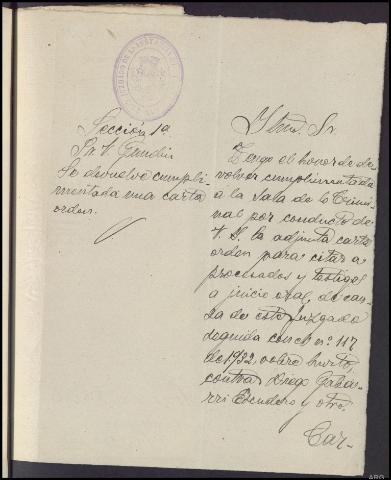 JUZGADO DE
Sección 1ª
Se devuelve cumpli-
mentada una carta
orden.
Iltmo. Sr.
Tengo el honor de de-
volver cumplimentada
a la Sala de lo Crimi-
nal por conducto de
V. S. la adjunta carta
orden para citar a
procesados y testigos
a juicio oral, de cau-
sa de este Juzgado
seguida con el nº. 117
de 1932, sobre hurto,
contra Diego Gabar-
rri Escudero y otro.
Car-
ARG